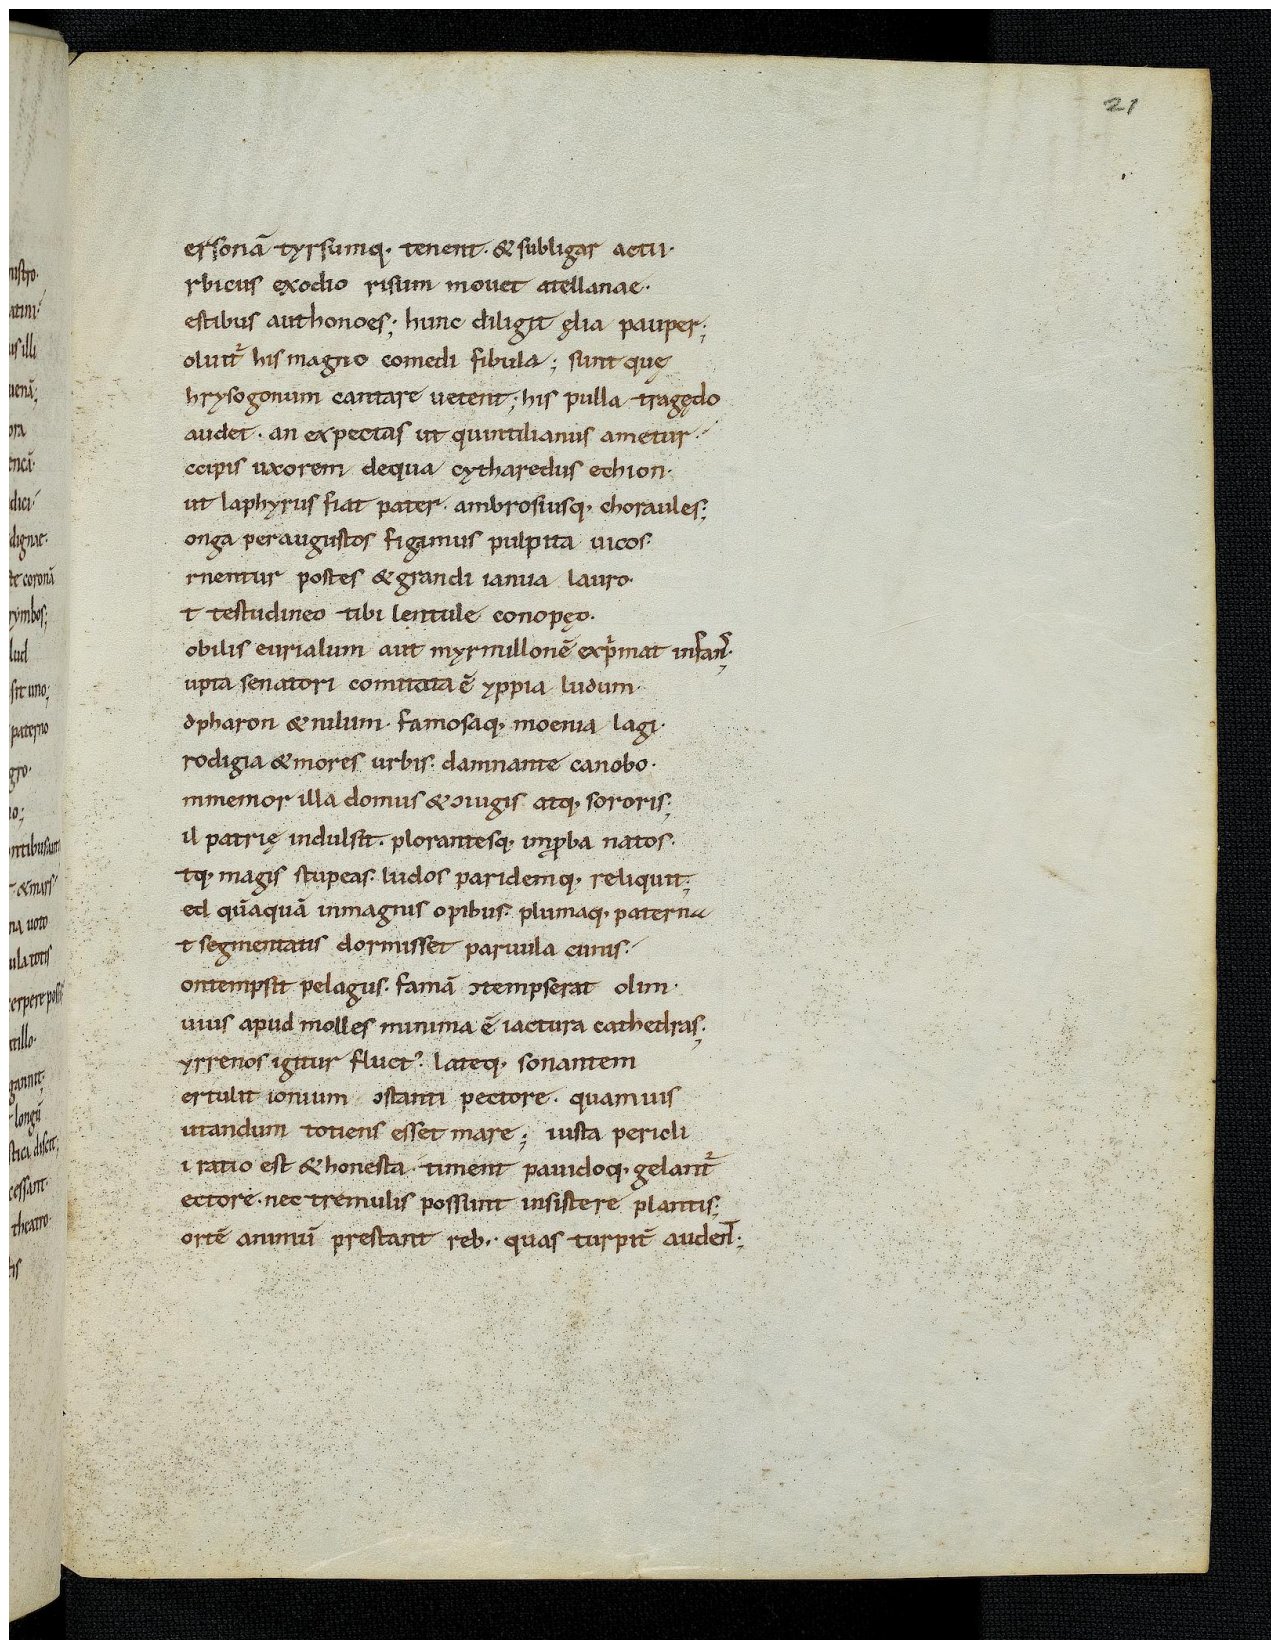 21
ersonā tyrsumq· tenent· & subligar actii·
rbicus exodio risum mouet atellanae·
estibus authonoes; hunc diligit ęlia pauper;
oluit᷑ his magno comedi fibula; sunt quę
hrysogonum cantare uetent; his pulla tragędo
audet· an expectas ut quintilianus ametur·
ccipis uxorem dequa cytharedus echion·
ut laphyrus fiat pater· ambrosiusq· choraules;
onga peraugustos figamus pulpita uicos·
rnentur postes & grandi ianua lauro·
t testudineo tibi lentule conopęo·
obilis eurialum aut myrmillonē exp̄mat infans̄;
upta senatori comitata ē yppia ludum·
dpharon & nilum· famosaq· moenia lagi·
rodigia & mores urbis· damnante canobo·
mmemor illa domus & ↄiugis atq· sororis;
il patrię indulsit· plorantesq· inꝓba natos·
tq· magis stupeas· ludos paridemq· reliquit;
ed quāquā inmagnis opibus· plumaq· paterna
t segmentatis dormisset paruula cunis·
ontempsit pelagus· famā ↄtempserat olim·
uius apud molles minima ē iactura cathedras;
yrrenos igitur fluctꝰ· lateq· sonantem
ertulit ionium ↄstanti pectore· quamuis
utandum totiens esset mare; iusta pericli
i ratio est & honesta· timent pauidoq· gelant᷑
ectore· nec tremulis possunt insistere plantis;
ortē animū prestant reb·· quas turpit̄ audent̄;